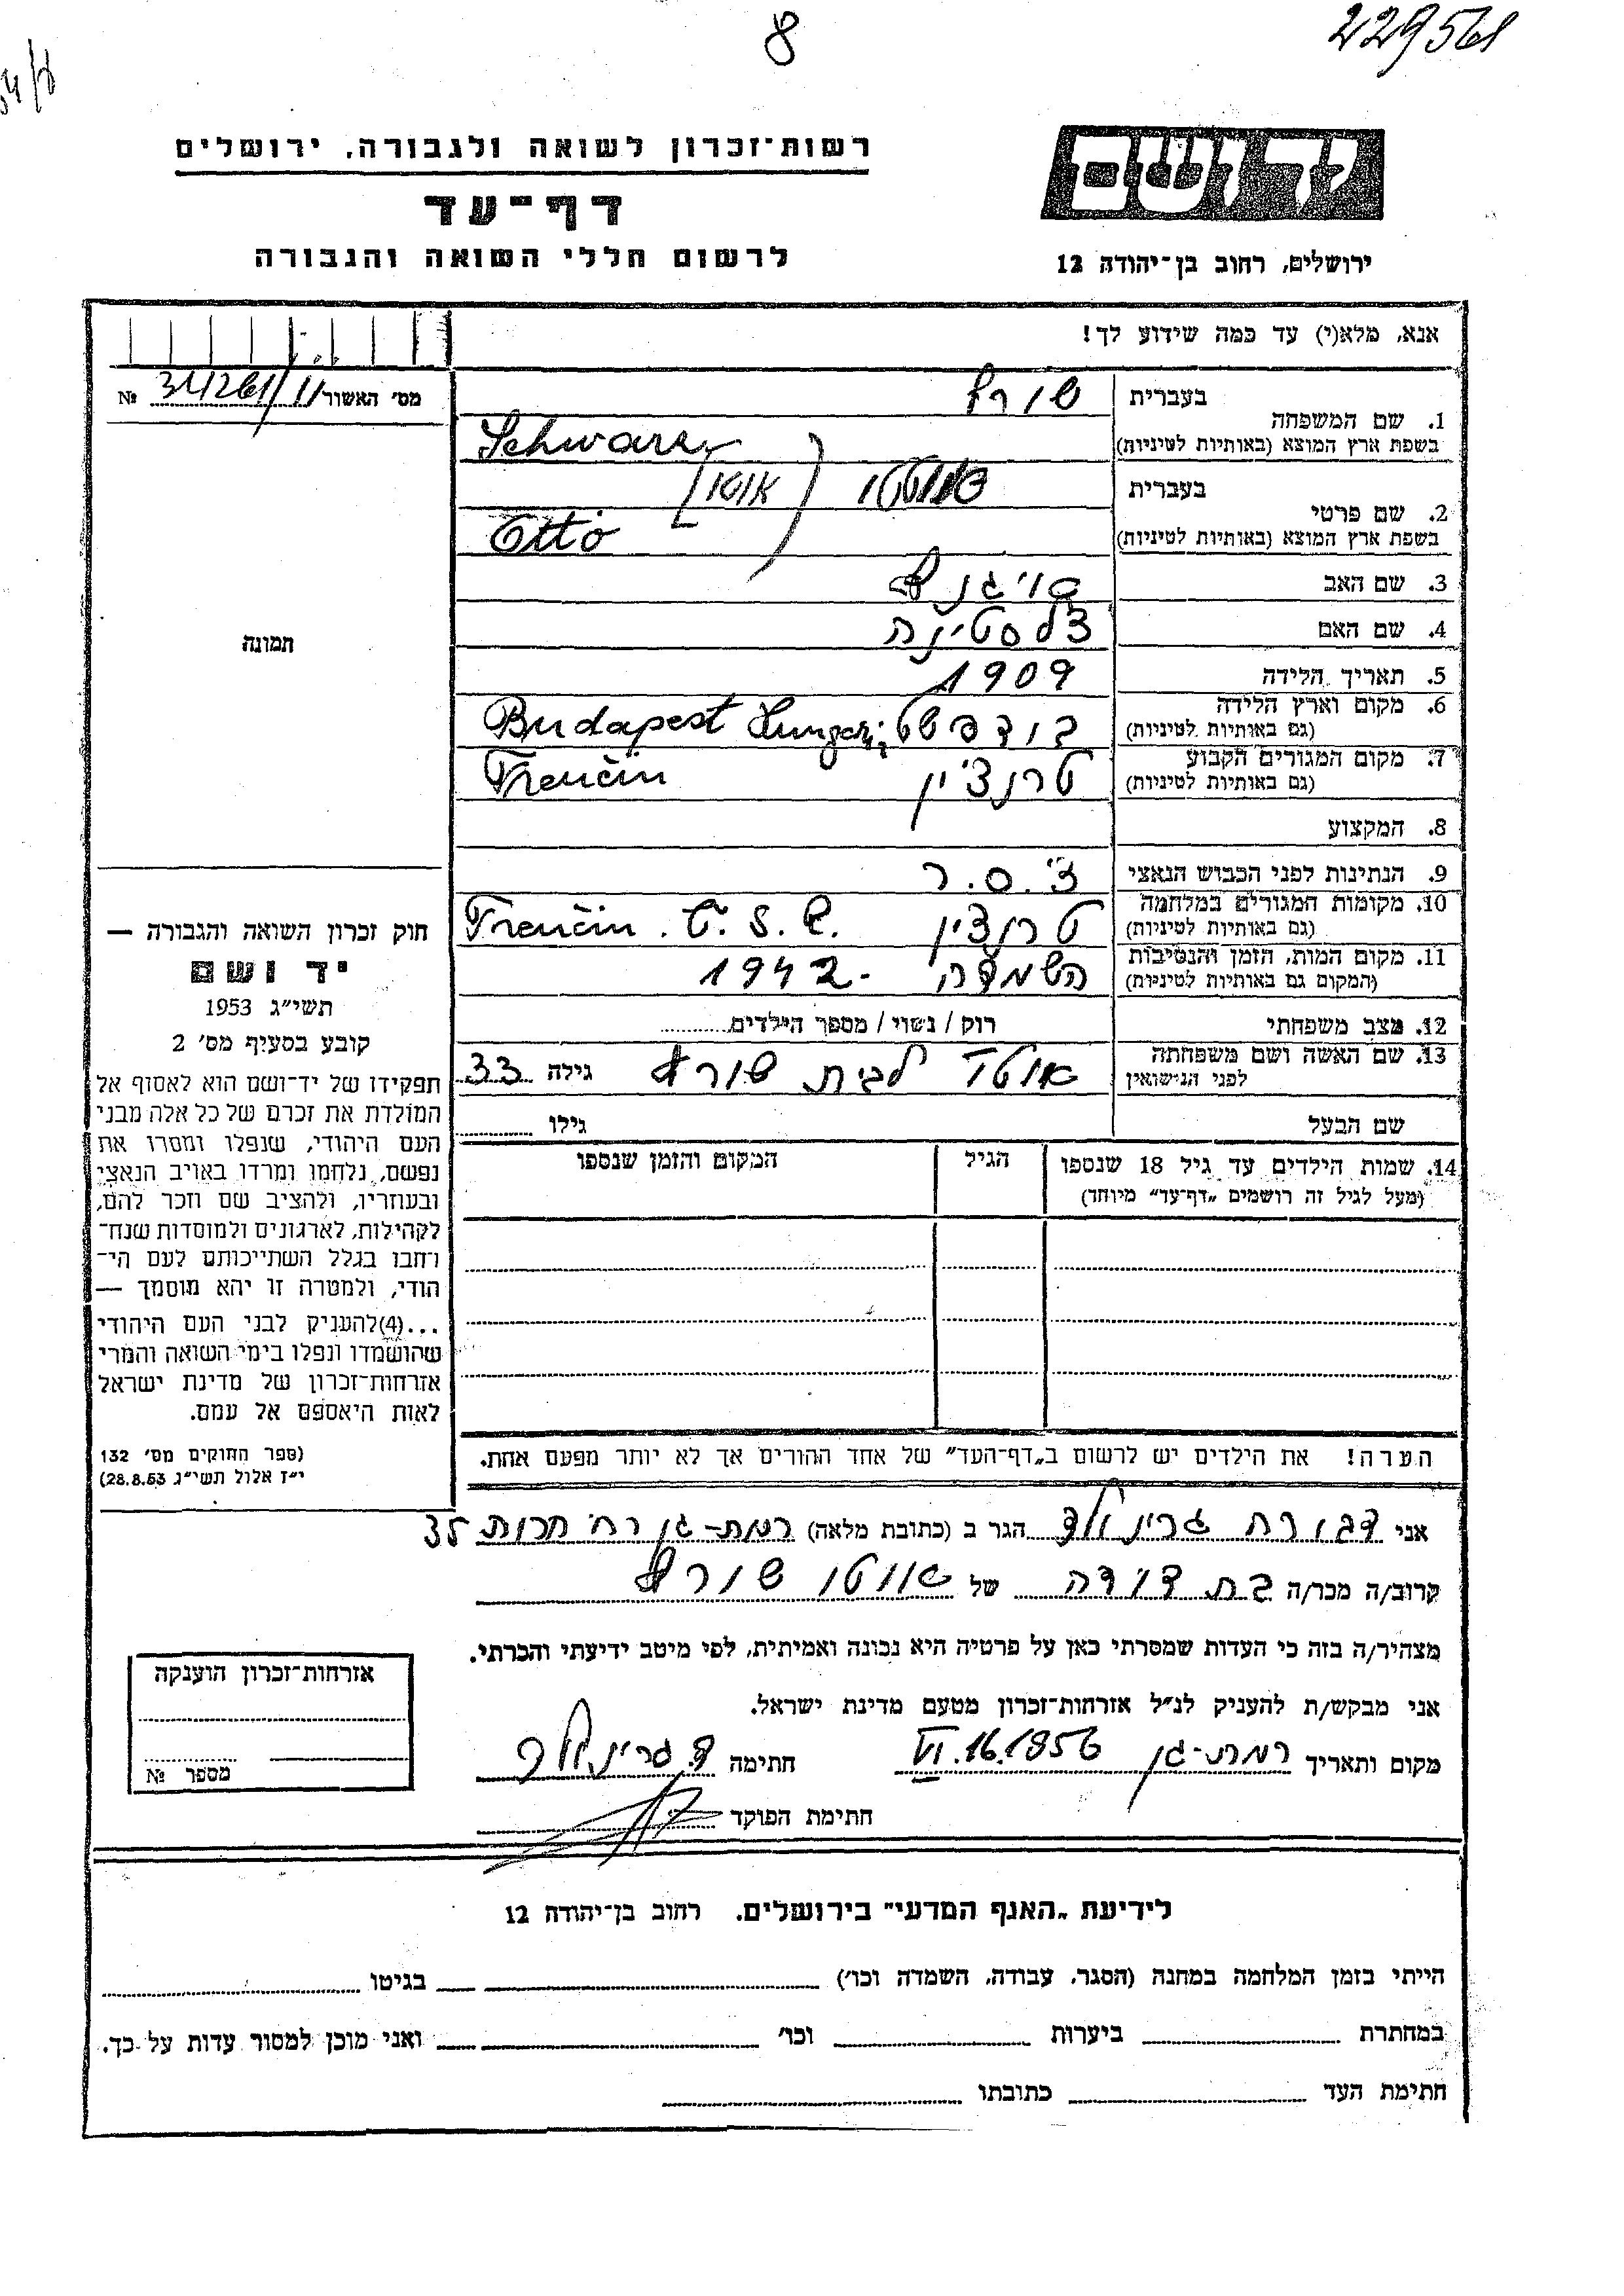 8
229561
רשות־זכרון לשואה ולגבורה, ירושלים
דף־עד
לרשום חללי השואה והגבורה
ידושם
ירושלים, רחוב בן־יהודה 12
אנא, מלא(י) עד כמה שידוע לך!
מס׳ האשור №
1. שם המשפחה
בעברית שורץ
בשפת ארץ המוצא (באותיות לטיניות) Schwarz
2. שם פרטי
בעברית אוטו
בשפת ארץ המוצא (באותיות לטיניות) Otto
3. שם האב
4. שם האם צלסטינה
5. תאריך הלידה 1909
6. מקום וארץ הלידה (גם באותיות לטיניות) בודפשט Budapest
7. מקום המגורים הקבוע (גם באותיות לטיניות) טרנצ׳ין Trenčin
8. המקצוע
9. הנתינות לפני הכבוש הנאצי צ׳.ס.ר
10. מקומות המגורים במלחמה (גם באותיות לטיניות) טרנצין Trenčin. Č. S. R.
11. מקום המות, הזמן והנסיבות (המקום גם באותיות לטיניות) השמדה - 1942
12. מצב משפחתי רוק / נשוי / מספר הילדים
13. שם האשה ושם משפחתה לפני הנישואין לבית שורץ גילה 33
שם הבעל גילו
14. שמות הילדים עד גיל 18 שנספו (מעל לגיל זה רושמים „דף־עד״ מיוחד) הגיל המקום והזמן שנספו
הערה! את הילדים יש לרשום ב„דף־העד״ של אחד ההורים אך לא יותר מפעם אחת.
תמונה
חוק זכרון השואה והגבורה —
יד ושם
תשי״ג 1953
קובע בסעיף מס׳ 2
תפקידו של יד־ושם הוא לאסוף אל
המולדת את זכרם של כל אלה מבני
העם היהודי, שנפלו ומסרו את
נפשם, נלחמו ומרדו באויב הנאצי
ובעוזריו, ולהציב שם וזכר להם,
לקהילות, לארגונים ולמוסדות שנח־
רבו בגלל השתייכותם לעם הי־
הודי, ולמטרה זו יהא מוסמך —
...(4) להעניק לבני העם היהודי
שהושמדו ונפלו בימי השואה והמרי
אזרחות־זכרון של מדינת ישראל
לאות היאספם אל עמם.
(ספר החוקים מס׳ 132
י״ז אלול תשי״ג 28.8.53)
אני דבורה גרינולד הגר ב (כתובת מלאה) רמת-גן רח׳ חרות 35
קרוב/ה מכר/ה בת דודה של אוטו שורץ
מצהיר/ה בזה כי העדות שמסרתי כאן על פרטיה היא נכונה ואמיתית, לפי מיטב ידיעתי והכרתי.
אני מבקש/ת להעניק לנ״ל אזרחות־זכרון מטעם מדינת ישראל.
מקום ותאריך רמת-גן 16.VI.1956 חתימה ד. גרינולד
חתימת הפוקד
אזרחות־זכרון הוענקה
מספר №
לידיעת „האגף המדעי״ בירושלים, רחוב בן־יהודה 12
הייתי בזמן המלחמה במחנה (הסגר, עבודה, השמדה וכו׳) בגיטו
במחתרת ביערות וכו׳ ואני מוכן למסור עדות על כך.
חתימת העד כתובתו